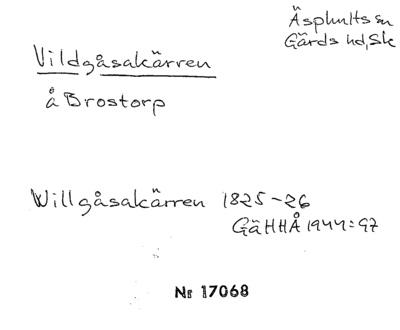 Äsphults sn
Gärds hd, Sk
Vildgåsakärren
å Brostorp
Willgåsakärren 1825-26
GäHHÅ 1944:97
Nr 17068